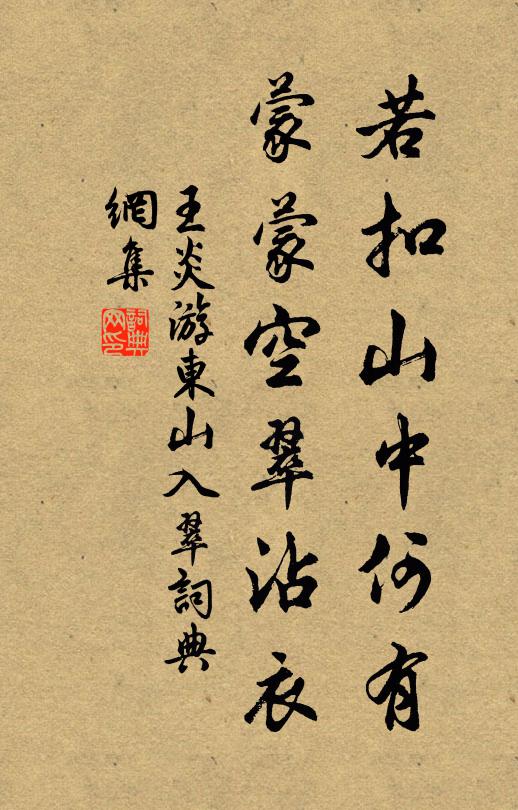 若扣山中何有
蒙蒙空翠沾衣
王炎游東山入翠詞典
網集
詞典
网印